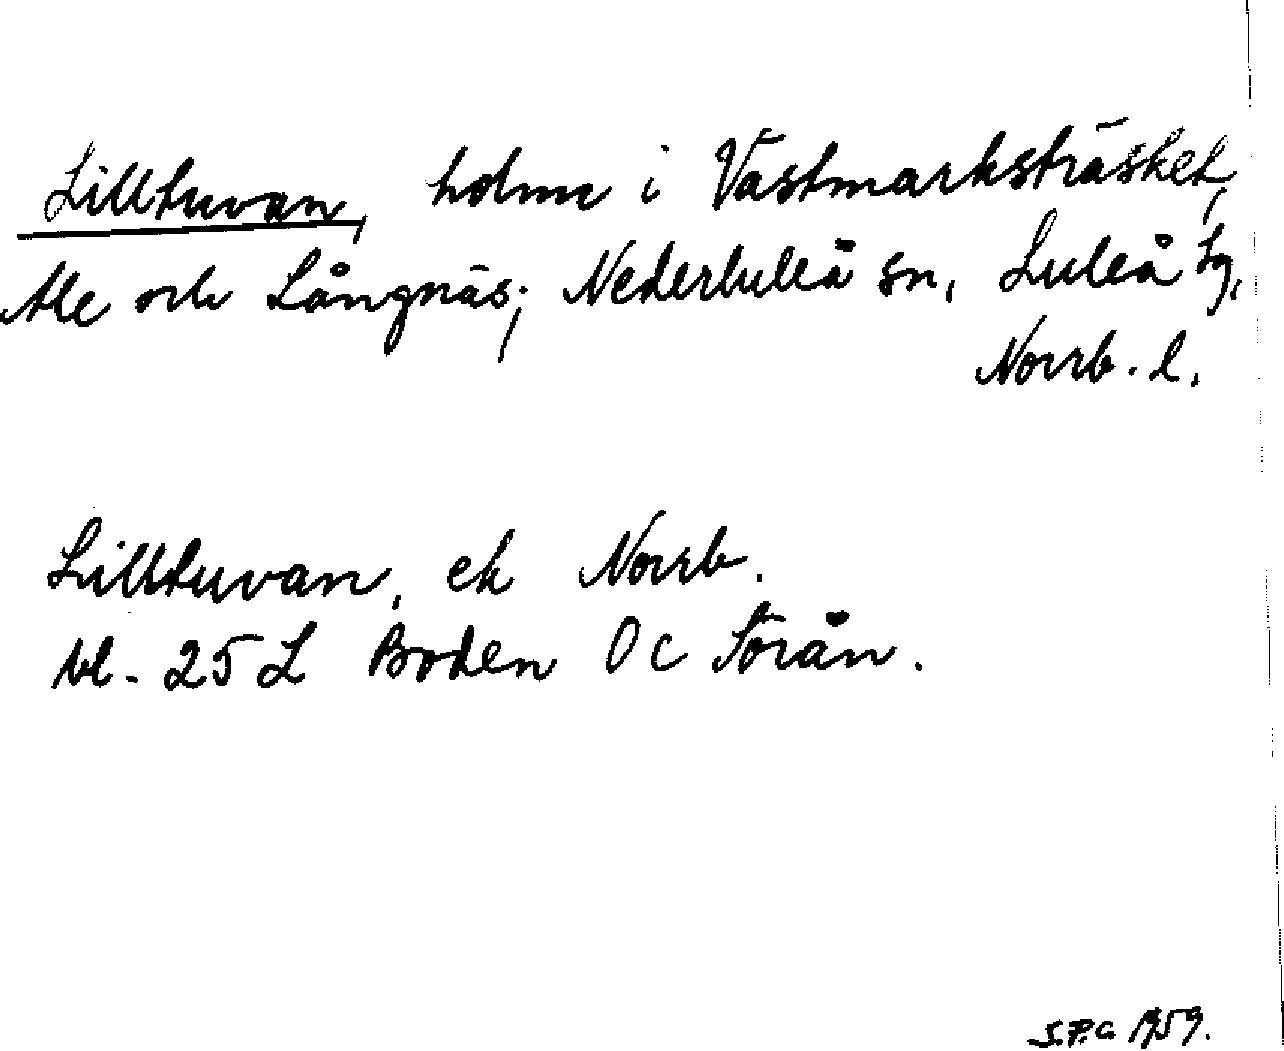 Lilltuvan, holme i Västmarksträsket,
Ale och Långnäs; Nederluleå sn, Luleå tg,
Norrb. l.
Lilltuvan, ek Norrb.
bl. 25 L Boden 0 c Sörån.
S.P.G 1959.